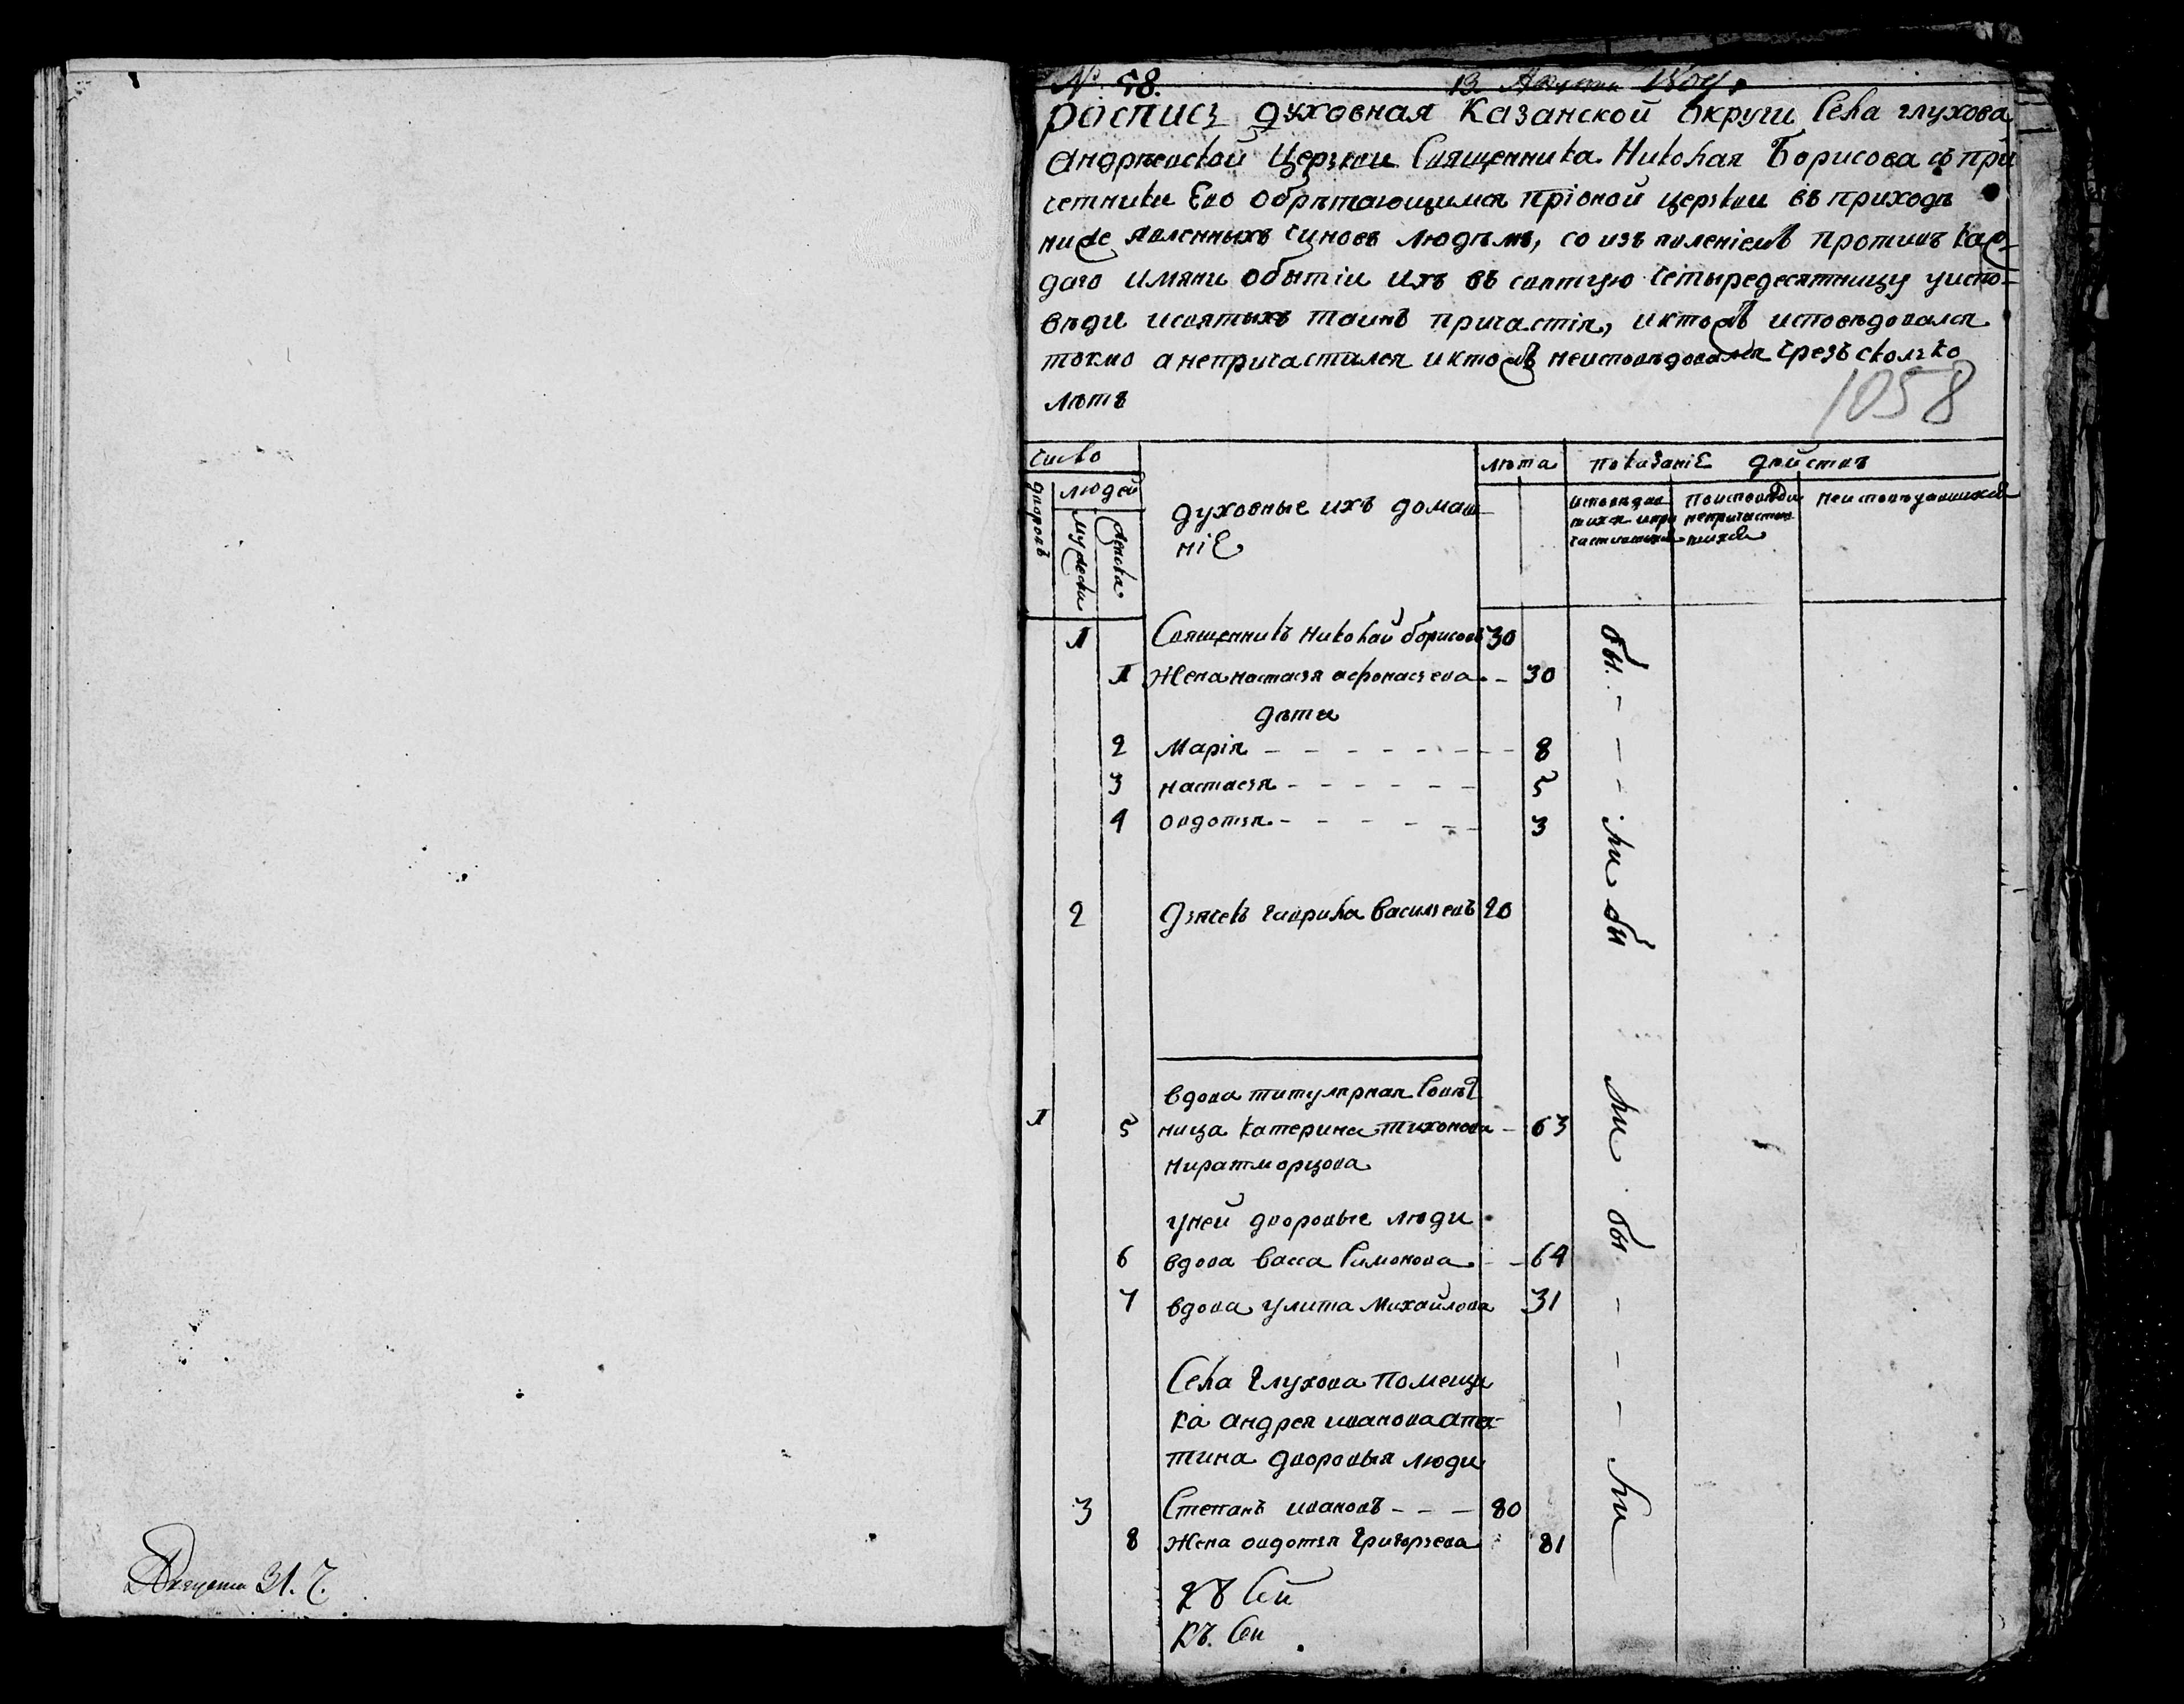 Августа 31. ч.
№ 48.
13 Августа 1804 г
роспись духовная Казанской округи Села глухова
Андрѣевской Церькви Священника Николая Борисова съ при
четники Ево обрѣтающимся пріоной церькви въ приходѣ
ниже явленныхъ чиновъ людѣмъ, со изъявленіемъ противъ каж-
даго имяни обытіи ихъ въ святую четыредесятницу уиспо-
вѣди исвятыхъ таинъ причастія, иктожъ исповѣдовался
токмо анепричастился иктожъ неисповѣдовался чрезъ сколько
лѣтъ
1058
число
дворовъ
людей
мужеска
женска
духовные ихъ домаш
ніе
лѣта
показаніе действъ
исповѣдав
шихся ипри
частившихся
поисповѣди
непричастив
шихся
неисповѣдавшихся
1 Священникъ Николай борисовъ 30 бы.
1 Жена настасья афонасьева - 30
дѣти
2 Марія 8
3 настасья 5
4 овдотья 3 ли
2 Дьячекъ гаврила Васильевъ 20 бы
вдова титулярная Совѣт
1 5 ница катерина тихонова - 63 ли
ниратморцова
уней дворовые люди бы
6 вдова Васса Симонова - 64
7 вдова улита Михайлова 31
Села Глухова помещи
ка андрея иванова апа-
тина дворовыя люди
3 Степанъ ивановъ 80 ли
8 Жена овдотья Григорьева 81
къ Сей
къ. Сей